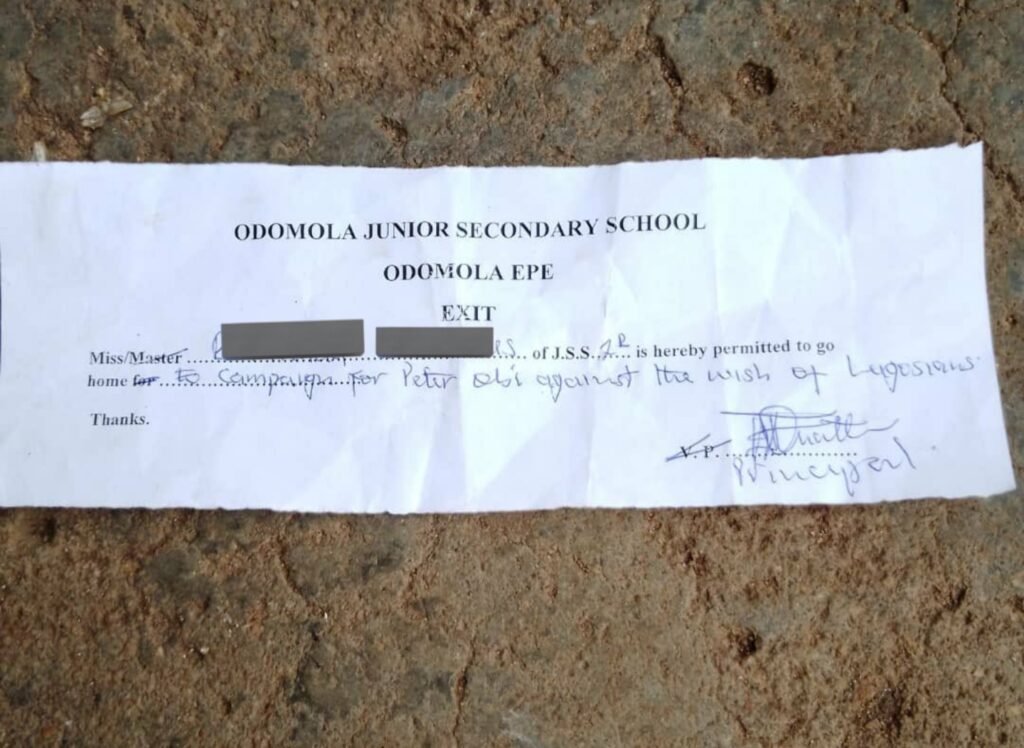 ODOMOLA JUNIOR SECONDARY SCHOOL
ODOMOLA EPE
EXIT
Miss/Master ..................... of J.S.S. 2R is hereby permitted to go
home for to Campaign for Peter Obi against the wish of Lagosians
Thanks.
V.P. ....................
Principal